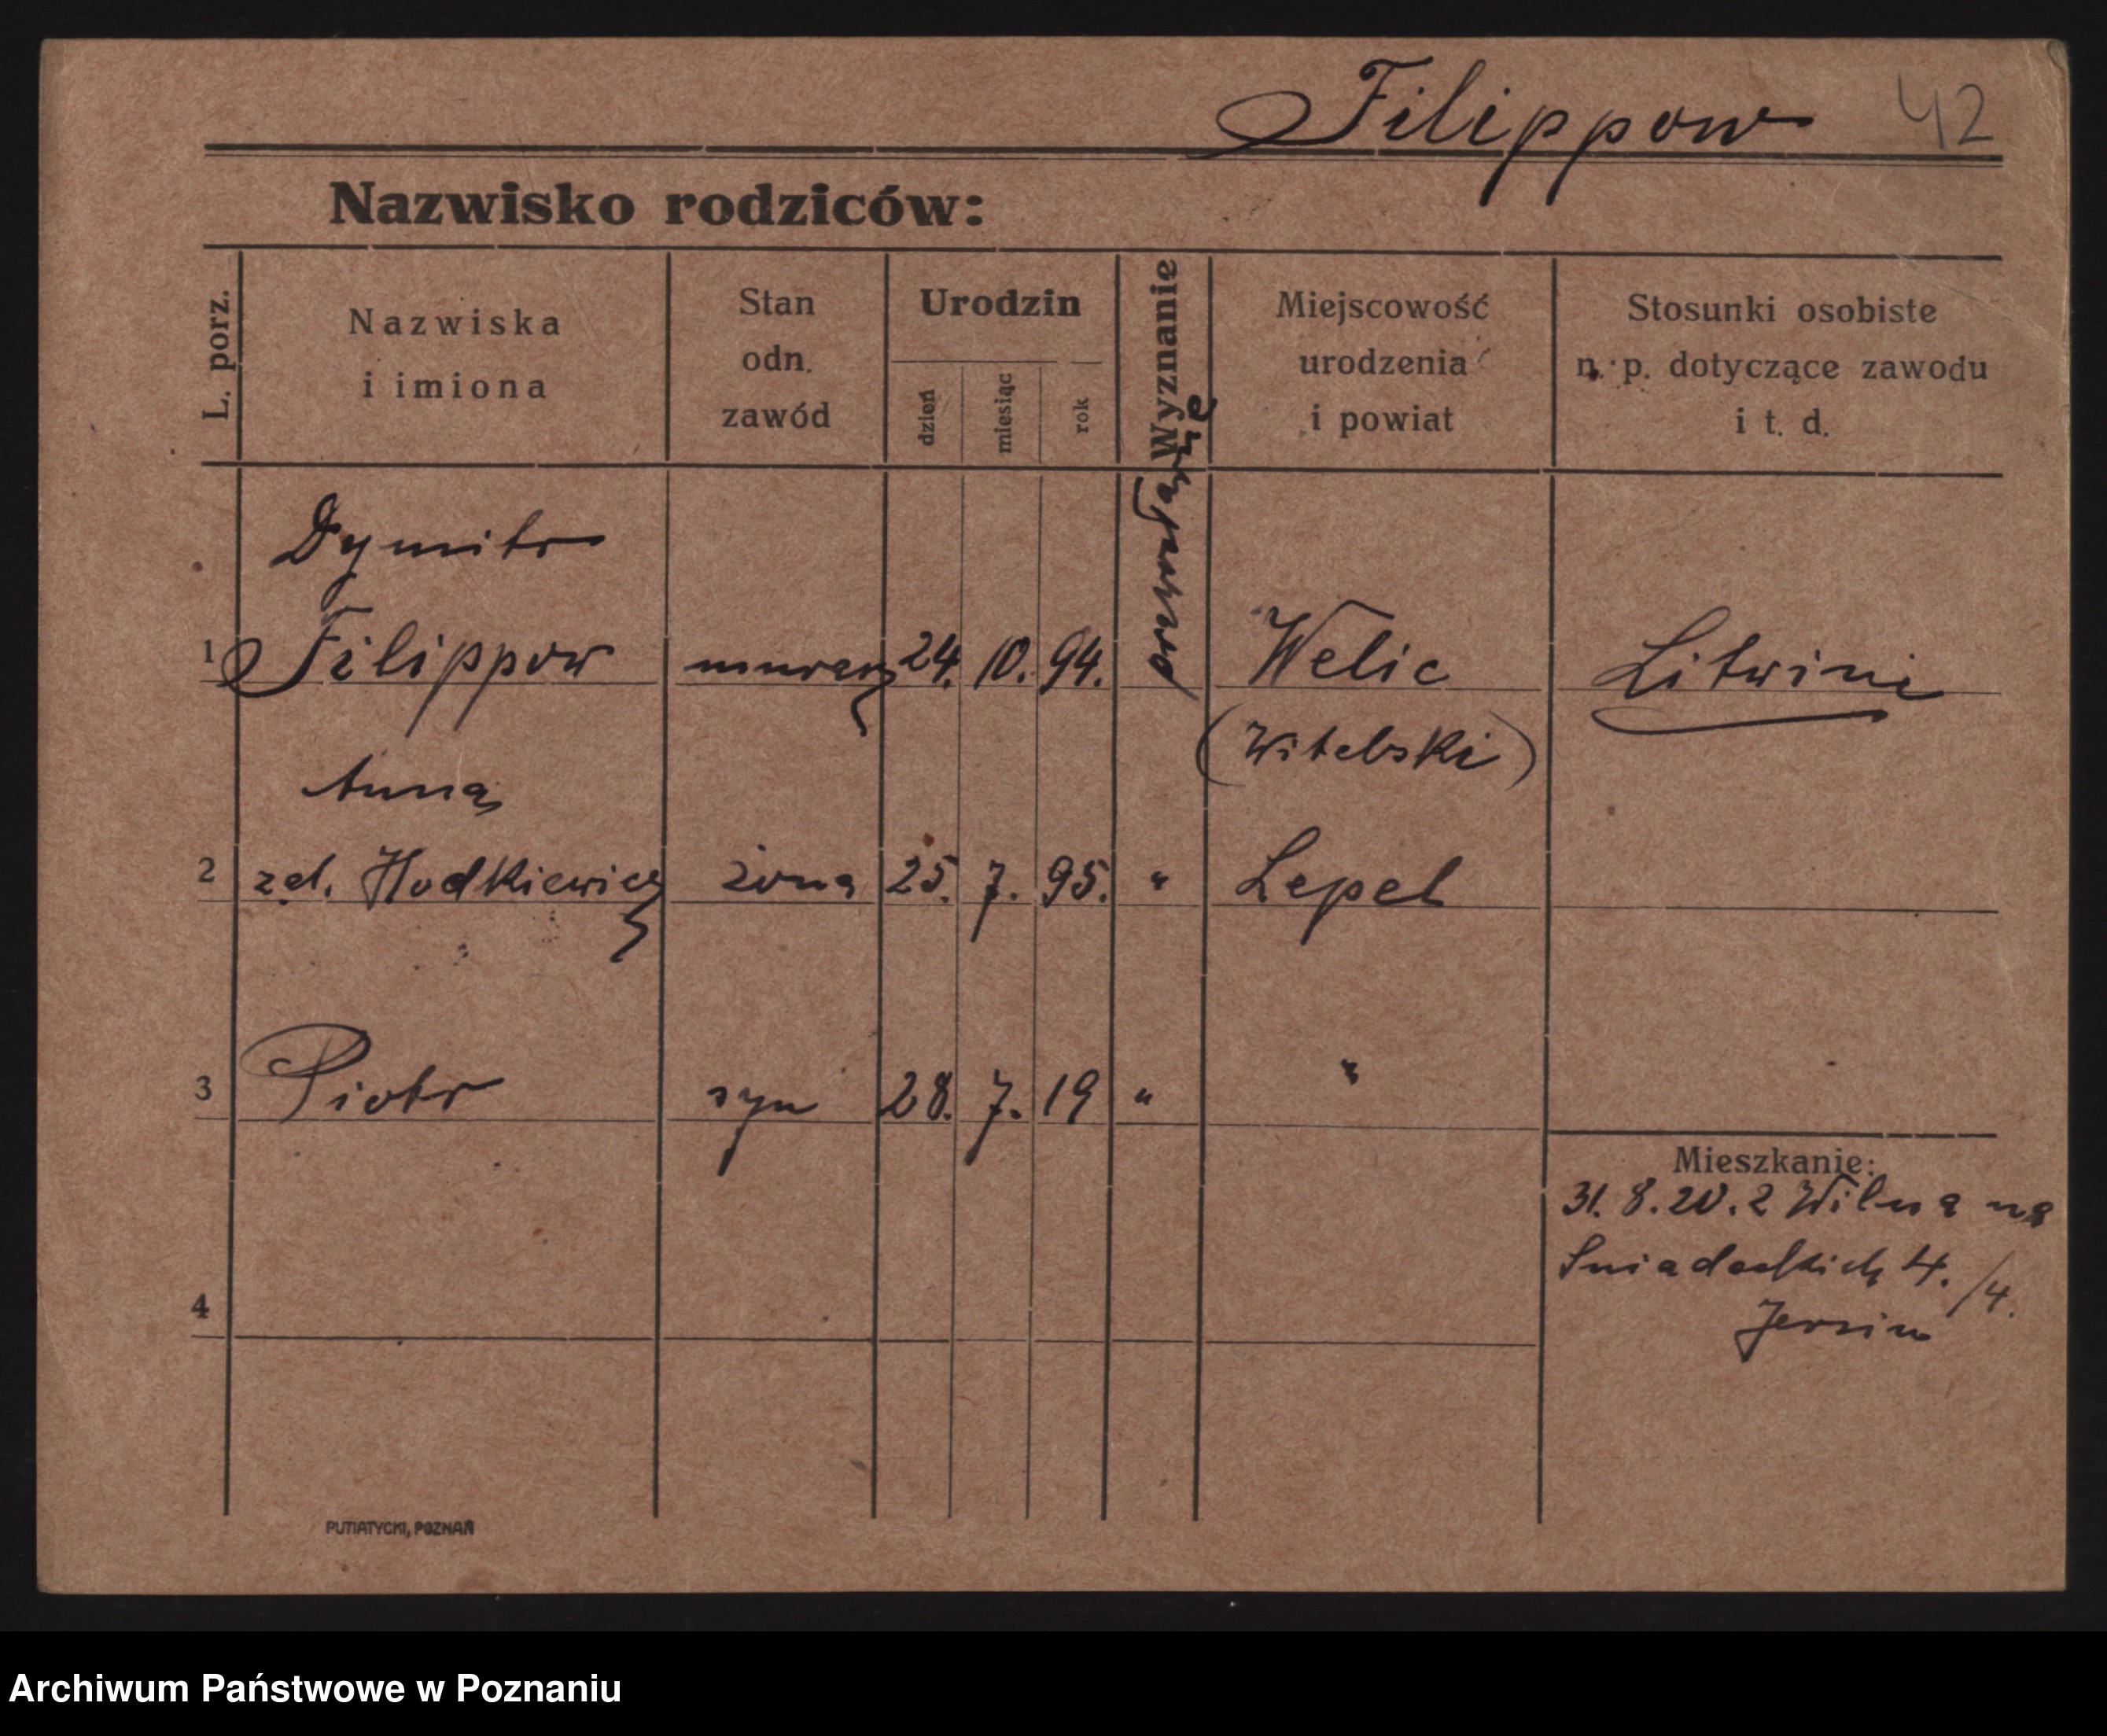 Filippow 42
Nazwisko rodziców:
L. porz.
Nazwiska
i imiona
Stan
odn.
zawód
Urodzin
dzień
miesiąc
rok
Wyznanie
Miejscowość
urodzenia
i powiat
Stosunki osobiste
n. p. dotyczące zawodu
i t. d.
Dymitr
1 Filippow murarz 24. 10. 94. prawosławne Welic Litwini
(Witebski)
Anna
2 zd. Hodkiewicz żona 25. 7. 95. " Lepel
3 Piotr syn 28. 7. 19 " "
Mieszkanie:
31. 8. 20. z Wilna na
Śniadeckich 4. /4.
4
PUTIATYCKI, POZNAŃ
Archiwum Państwowe w Poznaniu